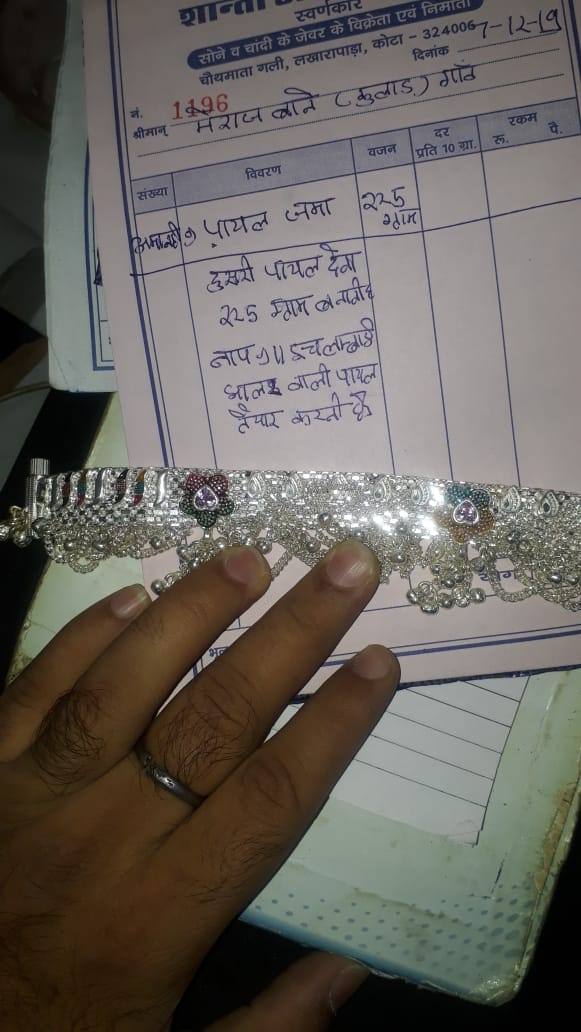 शान्ता
स्वर्णकार
सोने व चांदी के जेवर के विक्रेता एवं निर्माता
चौथमाता गली, लखारापाड़ा, कोटा - 324006
दिनांक 7-12-19
नं. 1196
श्रीमान् मेराज बाने (कुलाड) गाँव
संख्या विवरण वजन दर प्रति 10 ग्रा. रकम रु. पै.
पायल जमा २२५ ग्राम
दुसरी पायल देना
२२५ ग्राम
नाप ११॥ इंच
झालर वाली पायल
तैयार करनी है